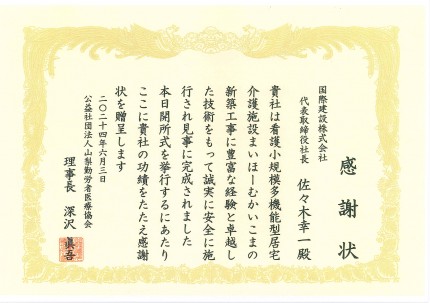 感謝状
国際建設株式会社
代表取締役社長 佐々木幸一殿
貴社は看護小規模多機能型居宅
介護施設まいほーむかいこまの
新築工事に豊富な経験と卓越し
た技術をもって誠実に安全に施
行され見事に完成されました
本日開所式を挙行するにあたり
ここに貴社の功績をたたえ感謝
状を贈呈します
二〇二十四年六月三日
公益社団法人山梨勤労者医療協会
理事長 深沢眞吾